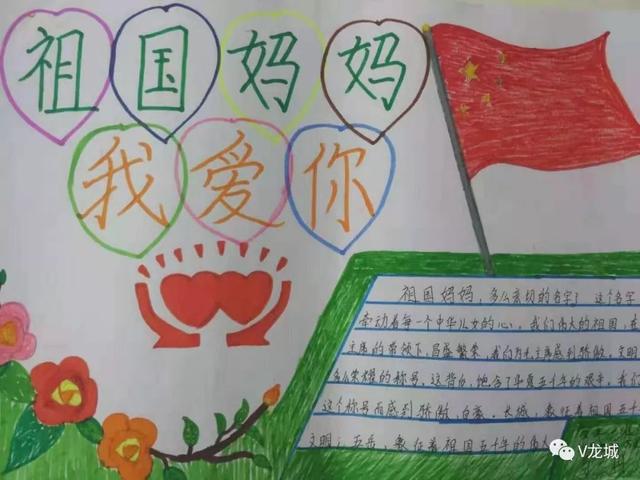 祖国妈妈
我爱你
祖国妈妈,多么亲切的名字,这个名字
牵动着每一个中华儿女的心。我们伟大的祖国,在
主席的带领下,昌盛繁荣,我们为
感到骄傲,文明
多么荣耀的称号,这背
含了
五千年的艰辛,我们
这个称号而感到骄傲,自豪。长城,象征着祖国五千
文明;五岳,象征着祖国五千年的伟大
V龙城